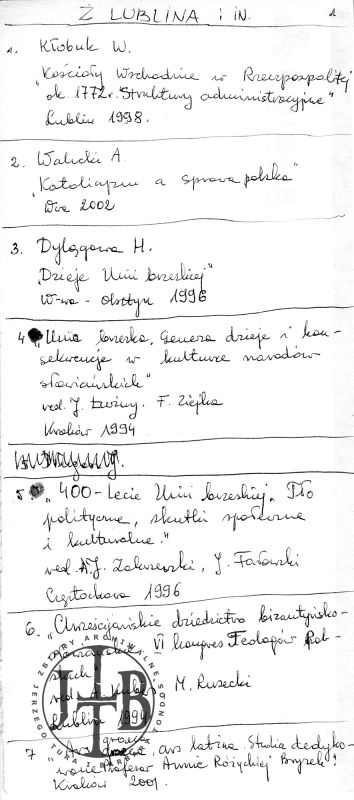 Z LUBLINA i IN. 1
1. Kłobuk W.
„Kościoły Wschodnie w Rzeczpospolitej
ok. 1772 r. Struktury administracyjne"
Lublin 1998.
2. Walicki A.
„Katolicyzm a sprawa polska"
W-wa 2002
3. Dylągowa H.
„Dzieje Unii brzeskiej"
W-wa - Olsztyn 1996
4 „Unia brzeska, Geneza dzieje i kon-
sekwencje w kulturze narodów
słowiańskich"
red. J. Łużny. F. Ziejka
Kraków 1994
5. „400-lecie Unii brzeskiej. Tło
polityczne, skutki społeczne
i kulturalne."
red. A.J. Zakrzewski, J. Fałowski
Częstochowa 1996
6. „Chrześcijańskie dziedzictwo bizantyńsko-
słowiańskie" VI kongres Teologów Pol-
skich
red. M. Rusecki
Lublin 1994
7 „Ars graeca, ars latina. Studia dedyko-
wane Profesor Annie Różyckiej Bryzek"
Kraków 2001.
JTB
ZBIORY ARCHIWALNE
JERZEGO TURA